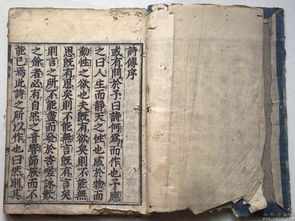 詩傳序
或有問於予曰詩何爲而作也予應
之曰人生而靜天之性也感於物而
動性之欲也夫旣有欲矣則不能無
思旣有思矣則不能無言旣有言矣
則言之所不能盡而發於咨嗟詠歎
之餘者必有自然之音響節族而不
能已焉此詩之所以作也曰然則其